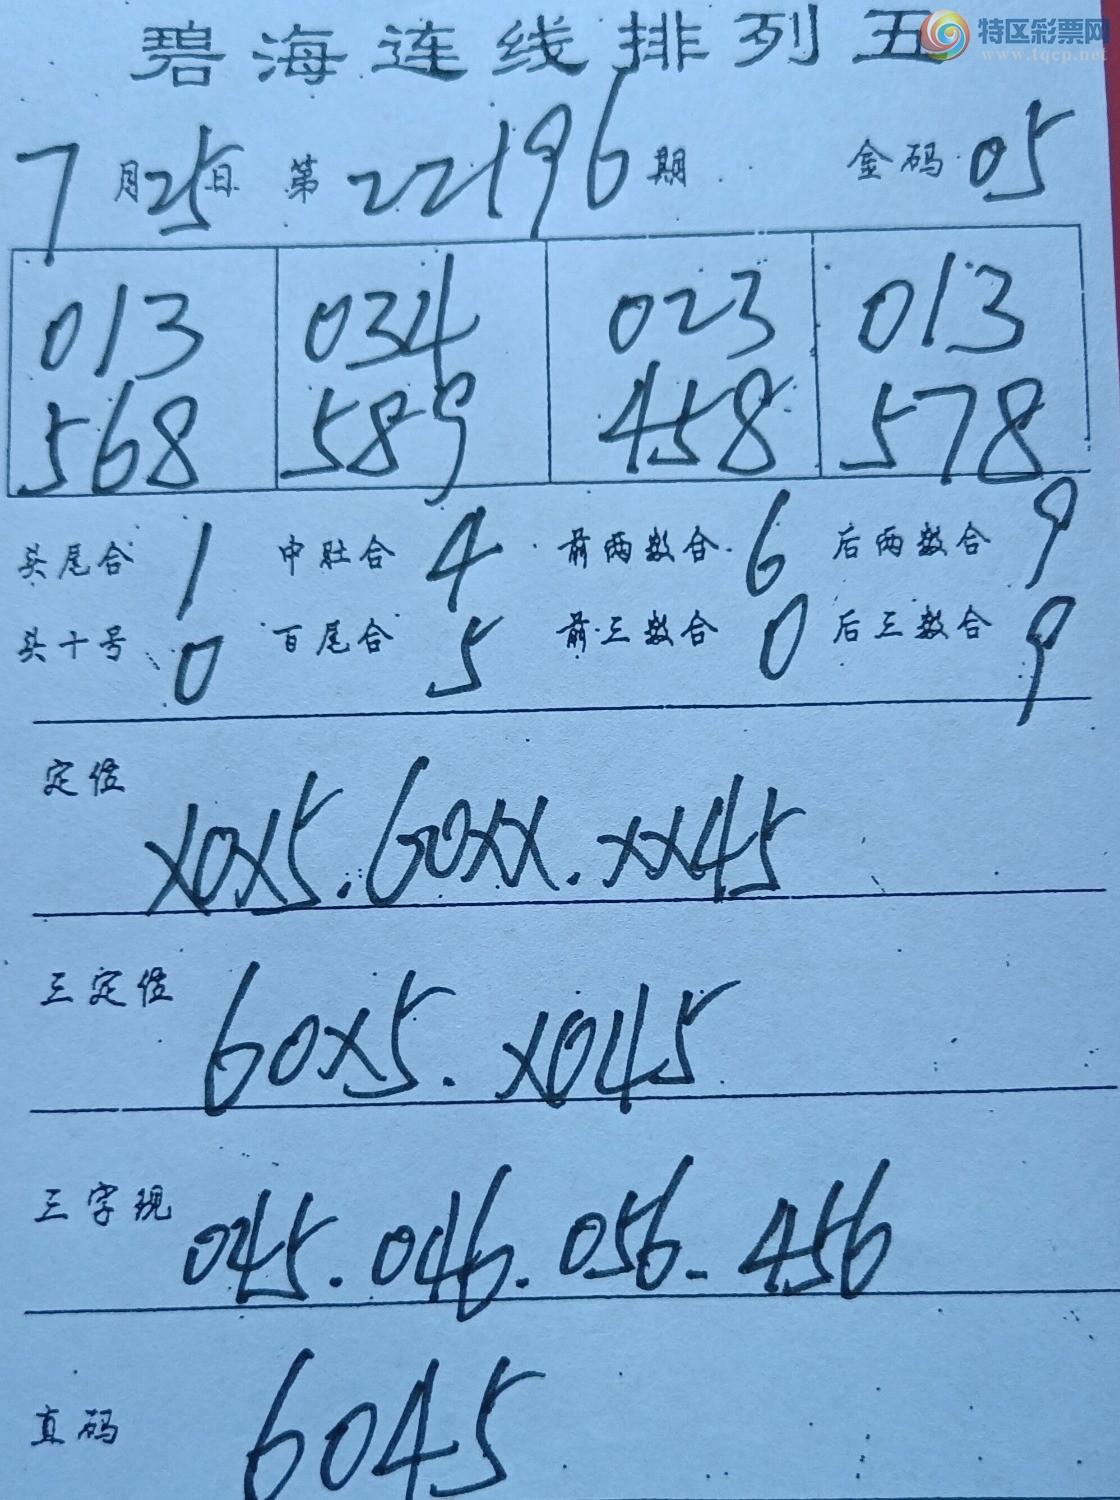 碧海连线排列五
特区彩票网
www.tqcp.net
7月25日 第22196期 金码05
013 034 023 013
568 589 458 578
头尾合 1 中肚合 4 前两数合 6 后两数合 9
头十号 0 百尾合 5 前三数合 0 后三数合 9
定位
X0X5.60XX.XX45
三定位
60X5.X045
三字现
045.046.056-456
直码
6045